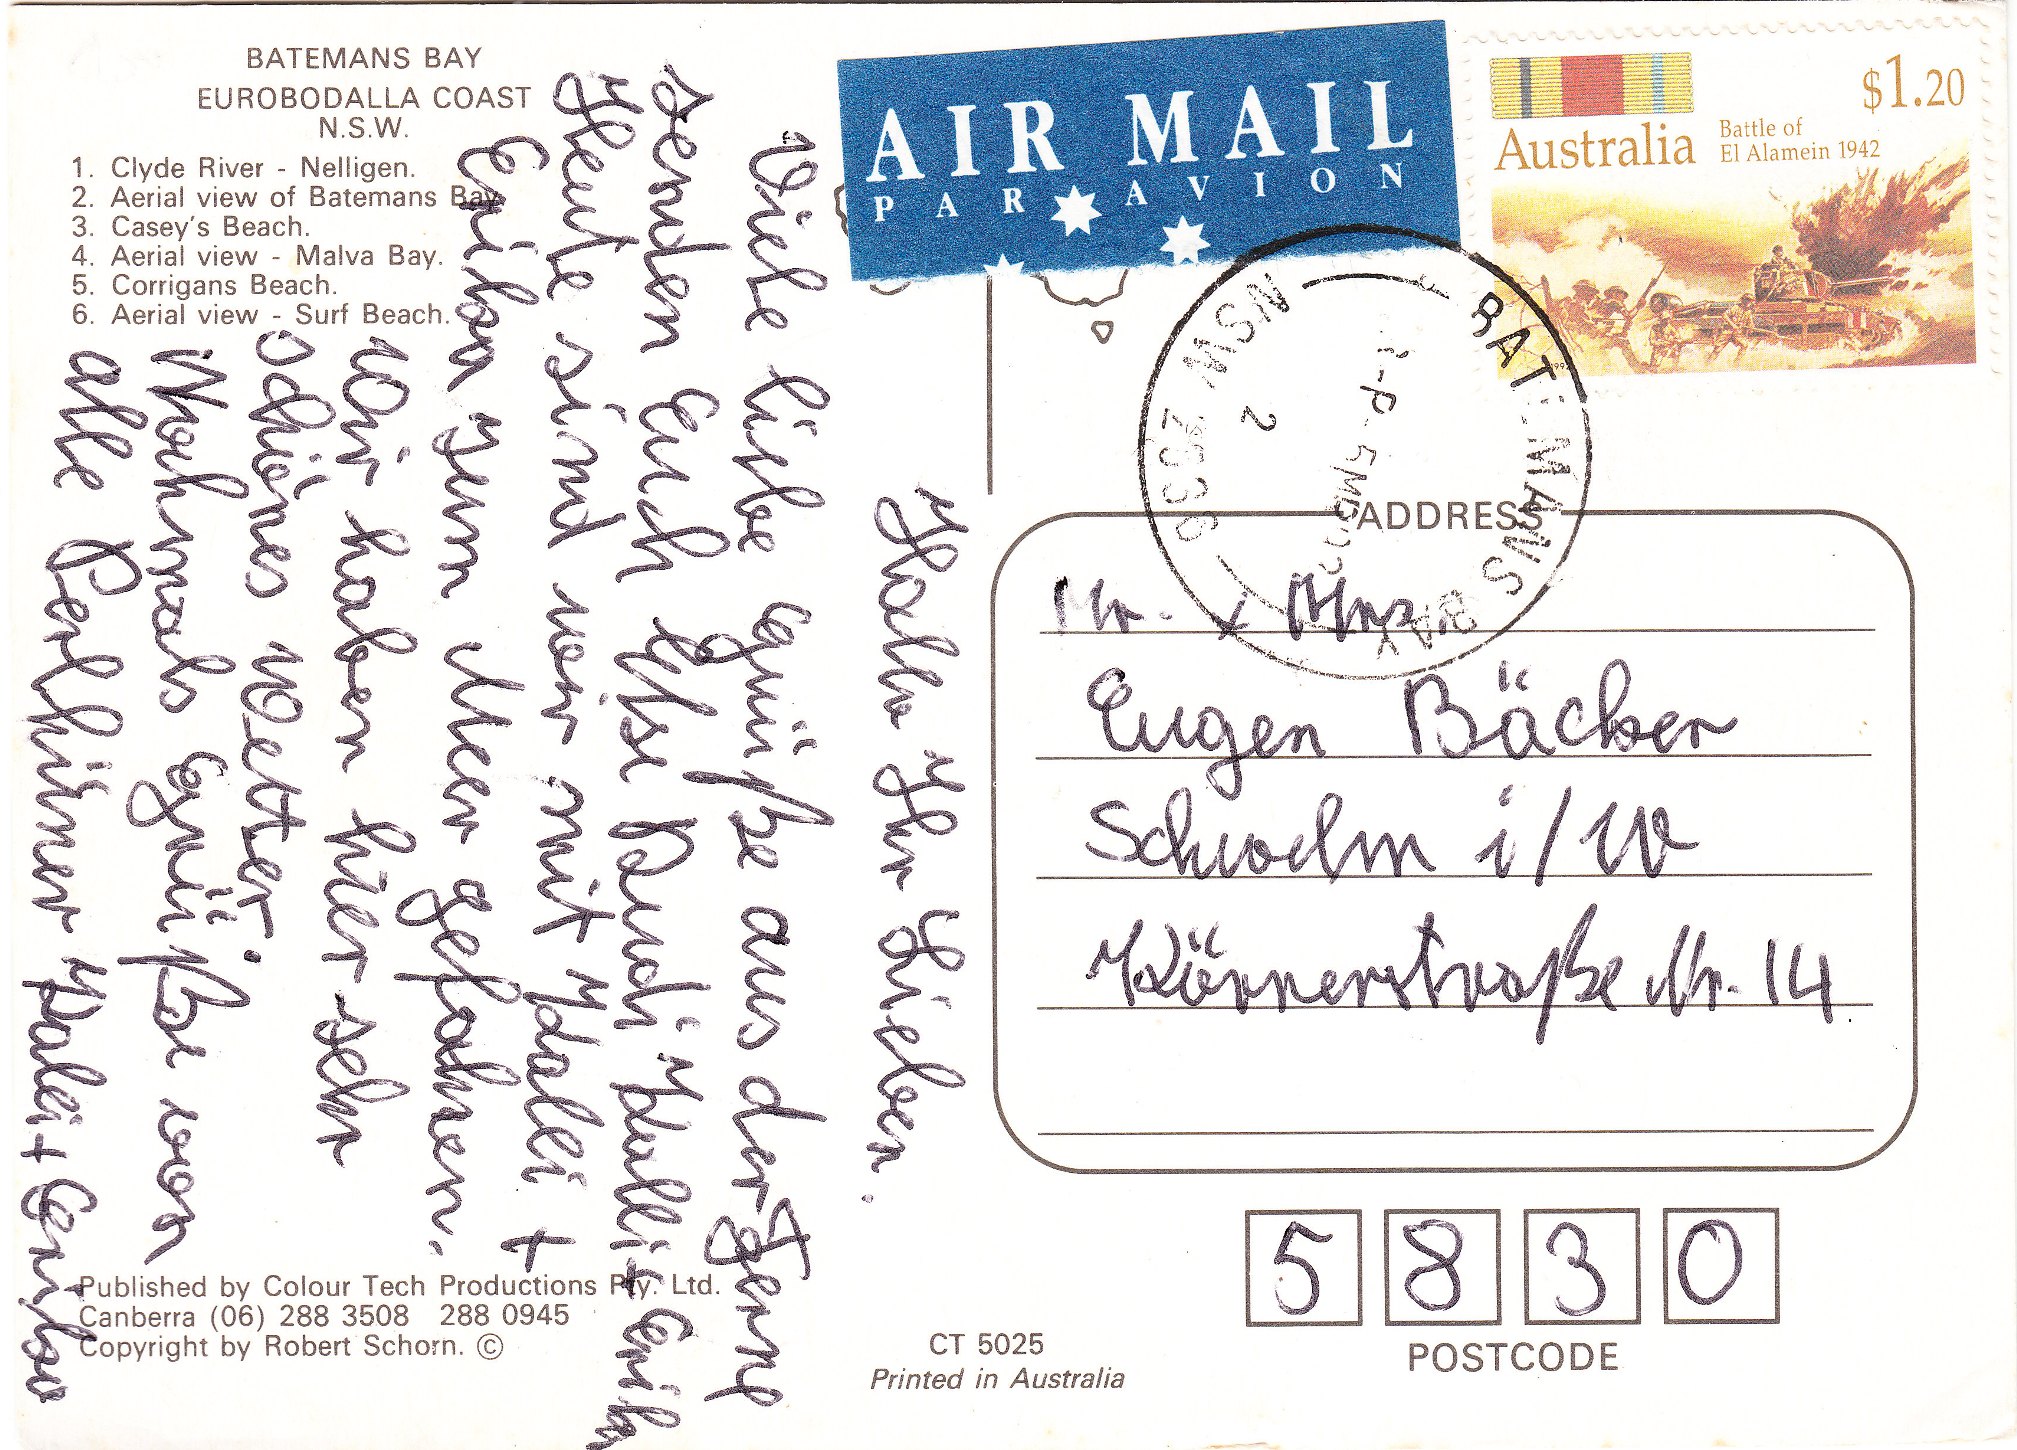 BATEMANS BAY
EUROBODALLA COAST
N.S.W.
1. Clyde River - Nelligen.
2. Aerial view of Batemans Bay.
3. Casey's Beach.
4. Aerial view - Malva Bay.
5. Corrigans Beach.
6. Aerial view - Surf Beach.
AIR MAIL
PAR AVION
$1.20
Australia
Battle of
El Alamein 1942
BATEMANS BAY
NSW 2536
2
Hallo Ihr Lieben.
Viele liebe Grüße aus der Ferne
senden Euch Else Rudi Halli + Erika
Heute sind wir mit Halli +
Erika zum Meer gefahren.
Wir haben hier sehr
schönes Wetter.
Nochmals Grüße von
alle Berliner Halli + Erika
ADDRESS
Mr. + Mrs.
Eugen Bäcker
Schwelm i/W
Körnerstraße Nr. 14
5830
POSTCODE
Published by Colour Tech Productions Pty. Ltd.
Canberra (06) 288 3508 288 0945
Copyright by Robert Schorn. ©
CT 5025
Printed in Australia